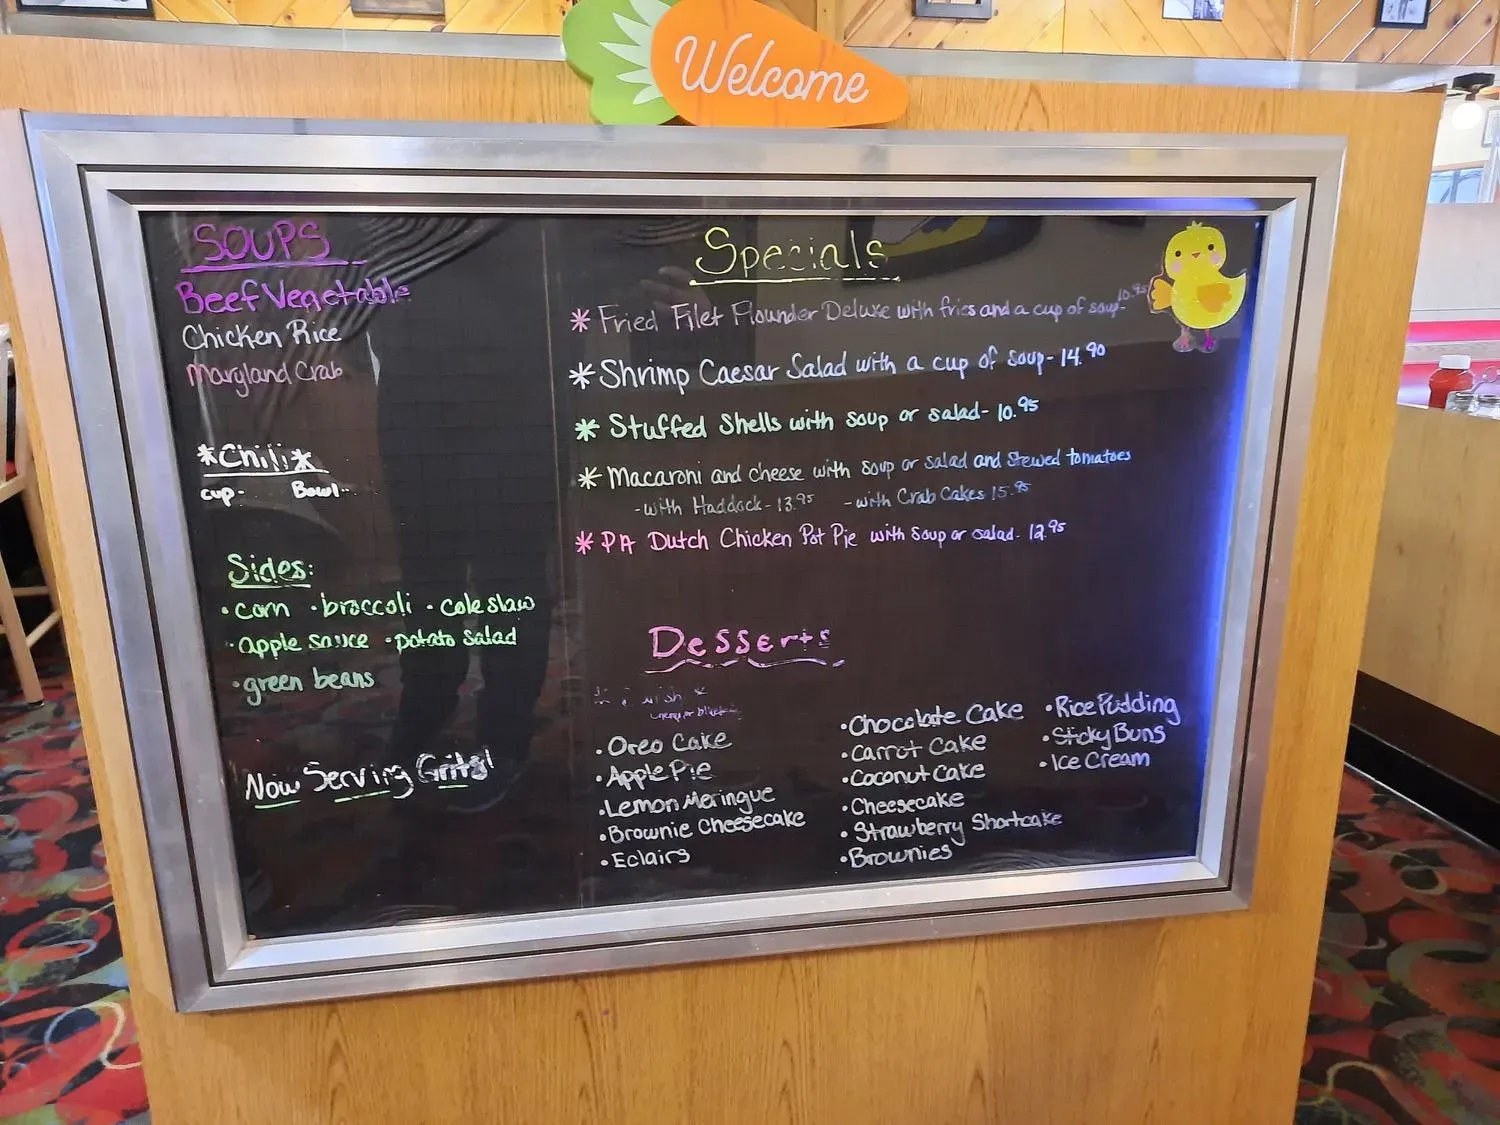 Welcome
SOUPS
Beef Vegetable
Chicken Rice
Maryland Crab
*Chili*
cup- Bowl-
Sides:
• corn • broccoli • coleslaw
• apple sauce • potato salad
• green beans
Now Serving Grits!
Specials
* Fried Filet Flounder Deluxe with fries and a cup of soup- 10.95
* Shrimp Caesar Salad with a cup of soup- 14.90
* Stuffed Shells with soup or salad- 10.95
* Macaroni and cheese with soup or salad and stewed tomatoes
-with Haddock- 13.95 -with Crab Cakes 15.95
* PA Dutch Chicken Pot Pie with soup or salad- 12.95
Desserts
• Oreo Cake
• Apple Pie
• Lemon Meringue
• Brownie Cheesecake
• Eclairs
• Chocolate Cake
• Carrot Cake
• Coconut Cake
• Cheesecake
• Strawberry Shortcake
• Brownies
• Rice Pudding
• Sticky Buns
• Ice Cream